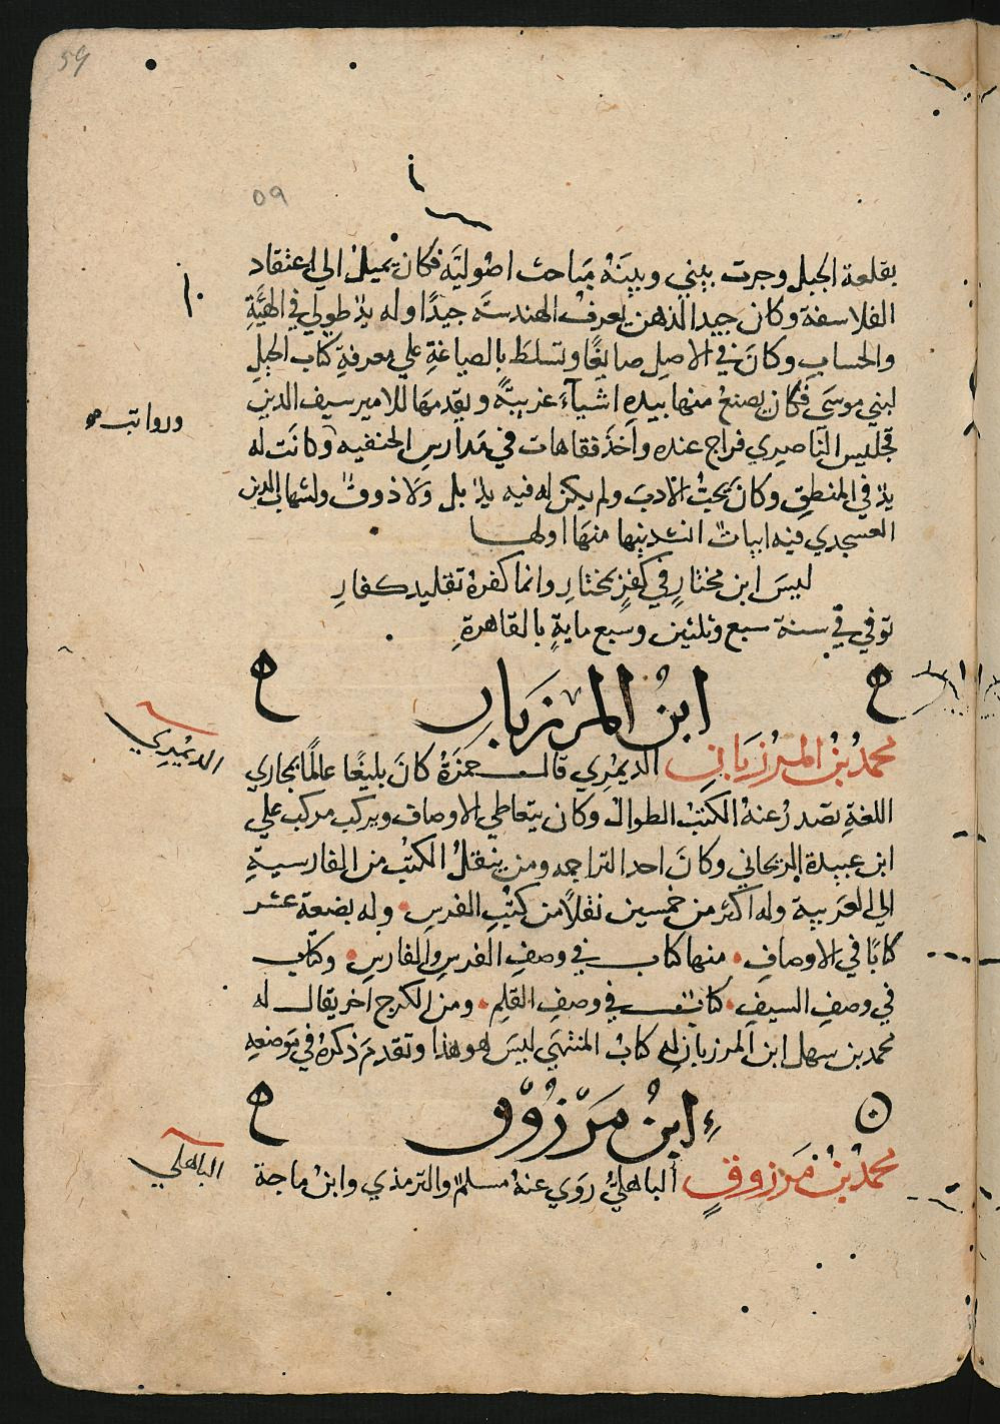 59
٥٩
بقلعة الجبل وجرت بيني وبينَهُ مَباحث اصُوليَّه فكان يميلُ الي اعتقاد
الفلاسفة وكان جيدا لذهن يَعرفُ الهندسَة جيدًا وله يدٌ طولي في الهيَّةِ
والحساب وكانَ في الاصلِ صايغًا وتسلطَ بالصياغةِ علي معرفةِ كتاب الحيلِ
لبني موسَي فكان يصنعُ منها بيدِه اشيآءَ غريبَةً ويقدمهَا للامير سيف الدين
ورواتب صح
قجليس الناصيري فراج عنده واخذَ فقاهات في مَدارسِ الحنفيه وكانَت له
يدٌ في المنطقِ وكان يحبُّ الادبَ ولم يكن له فيه يدٌ بل ولَا ذووقٌ ولشهاب الدين
العسجدي فيه ابياتٌ انشدنيها منهَا اولها
ليسَ ابن مختارٍ في كفرٍ بمختارِ وانما كفرهُ تقليد كفارِ
توفي في سنة سبع وثلثين وسبع مايةٍ بالقاهرةِ
ح ابنُ المرزبان ح
محمدُ بنُ المرزبَانِ الديمْرِي قال حمزةُ كانَ بليغًا عالمًا بمجاري
الديمْرِي
اللغةِ تصَدرُ عنهُ الكتبُ الطوالُ وكان يتعاطي الاوصاف ويركب مركب علي
ابن عبيدة الريحاني وكانَ احد التراجمه ومن ينقلُ الكتبُ من الفارسيةِ
الي العَربية وله اكثر من خمسين نقلًا من كتبِ الفرسِ وله بضعة عشر
كتابًا في الاوصافِ منها كتاب في وصفِ الفرسِ والفارسِ وكتاب
في وصفِ السيفِ كتاب في وصفِ القلمِ ومن الكرج اخر يقال له
محمد بن سهل ابن المرزبان له كتابُ المنتهَي ليسَ هو هذا وتقدمَ ذكرهُ في مَوضعهِ
ابنُ مَرْزُوْق ح
محمدُ بنُ مَرزوقٍ الباهليُّ روَي عنهُ مسلمٌ والترمذي وابنُ ماجة
الباهلي